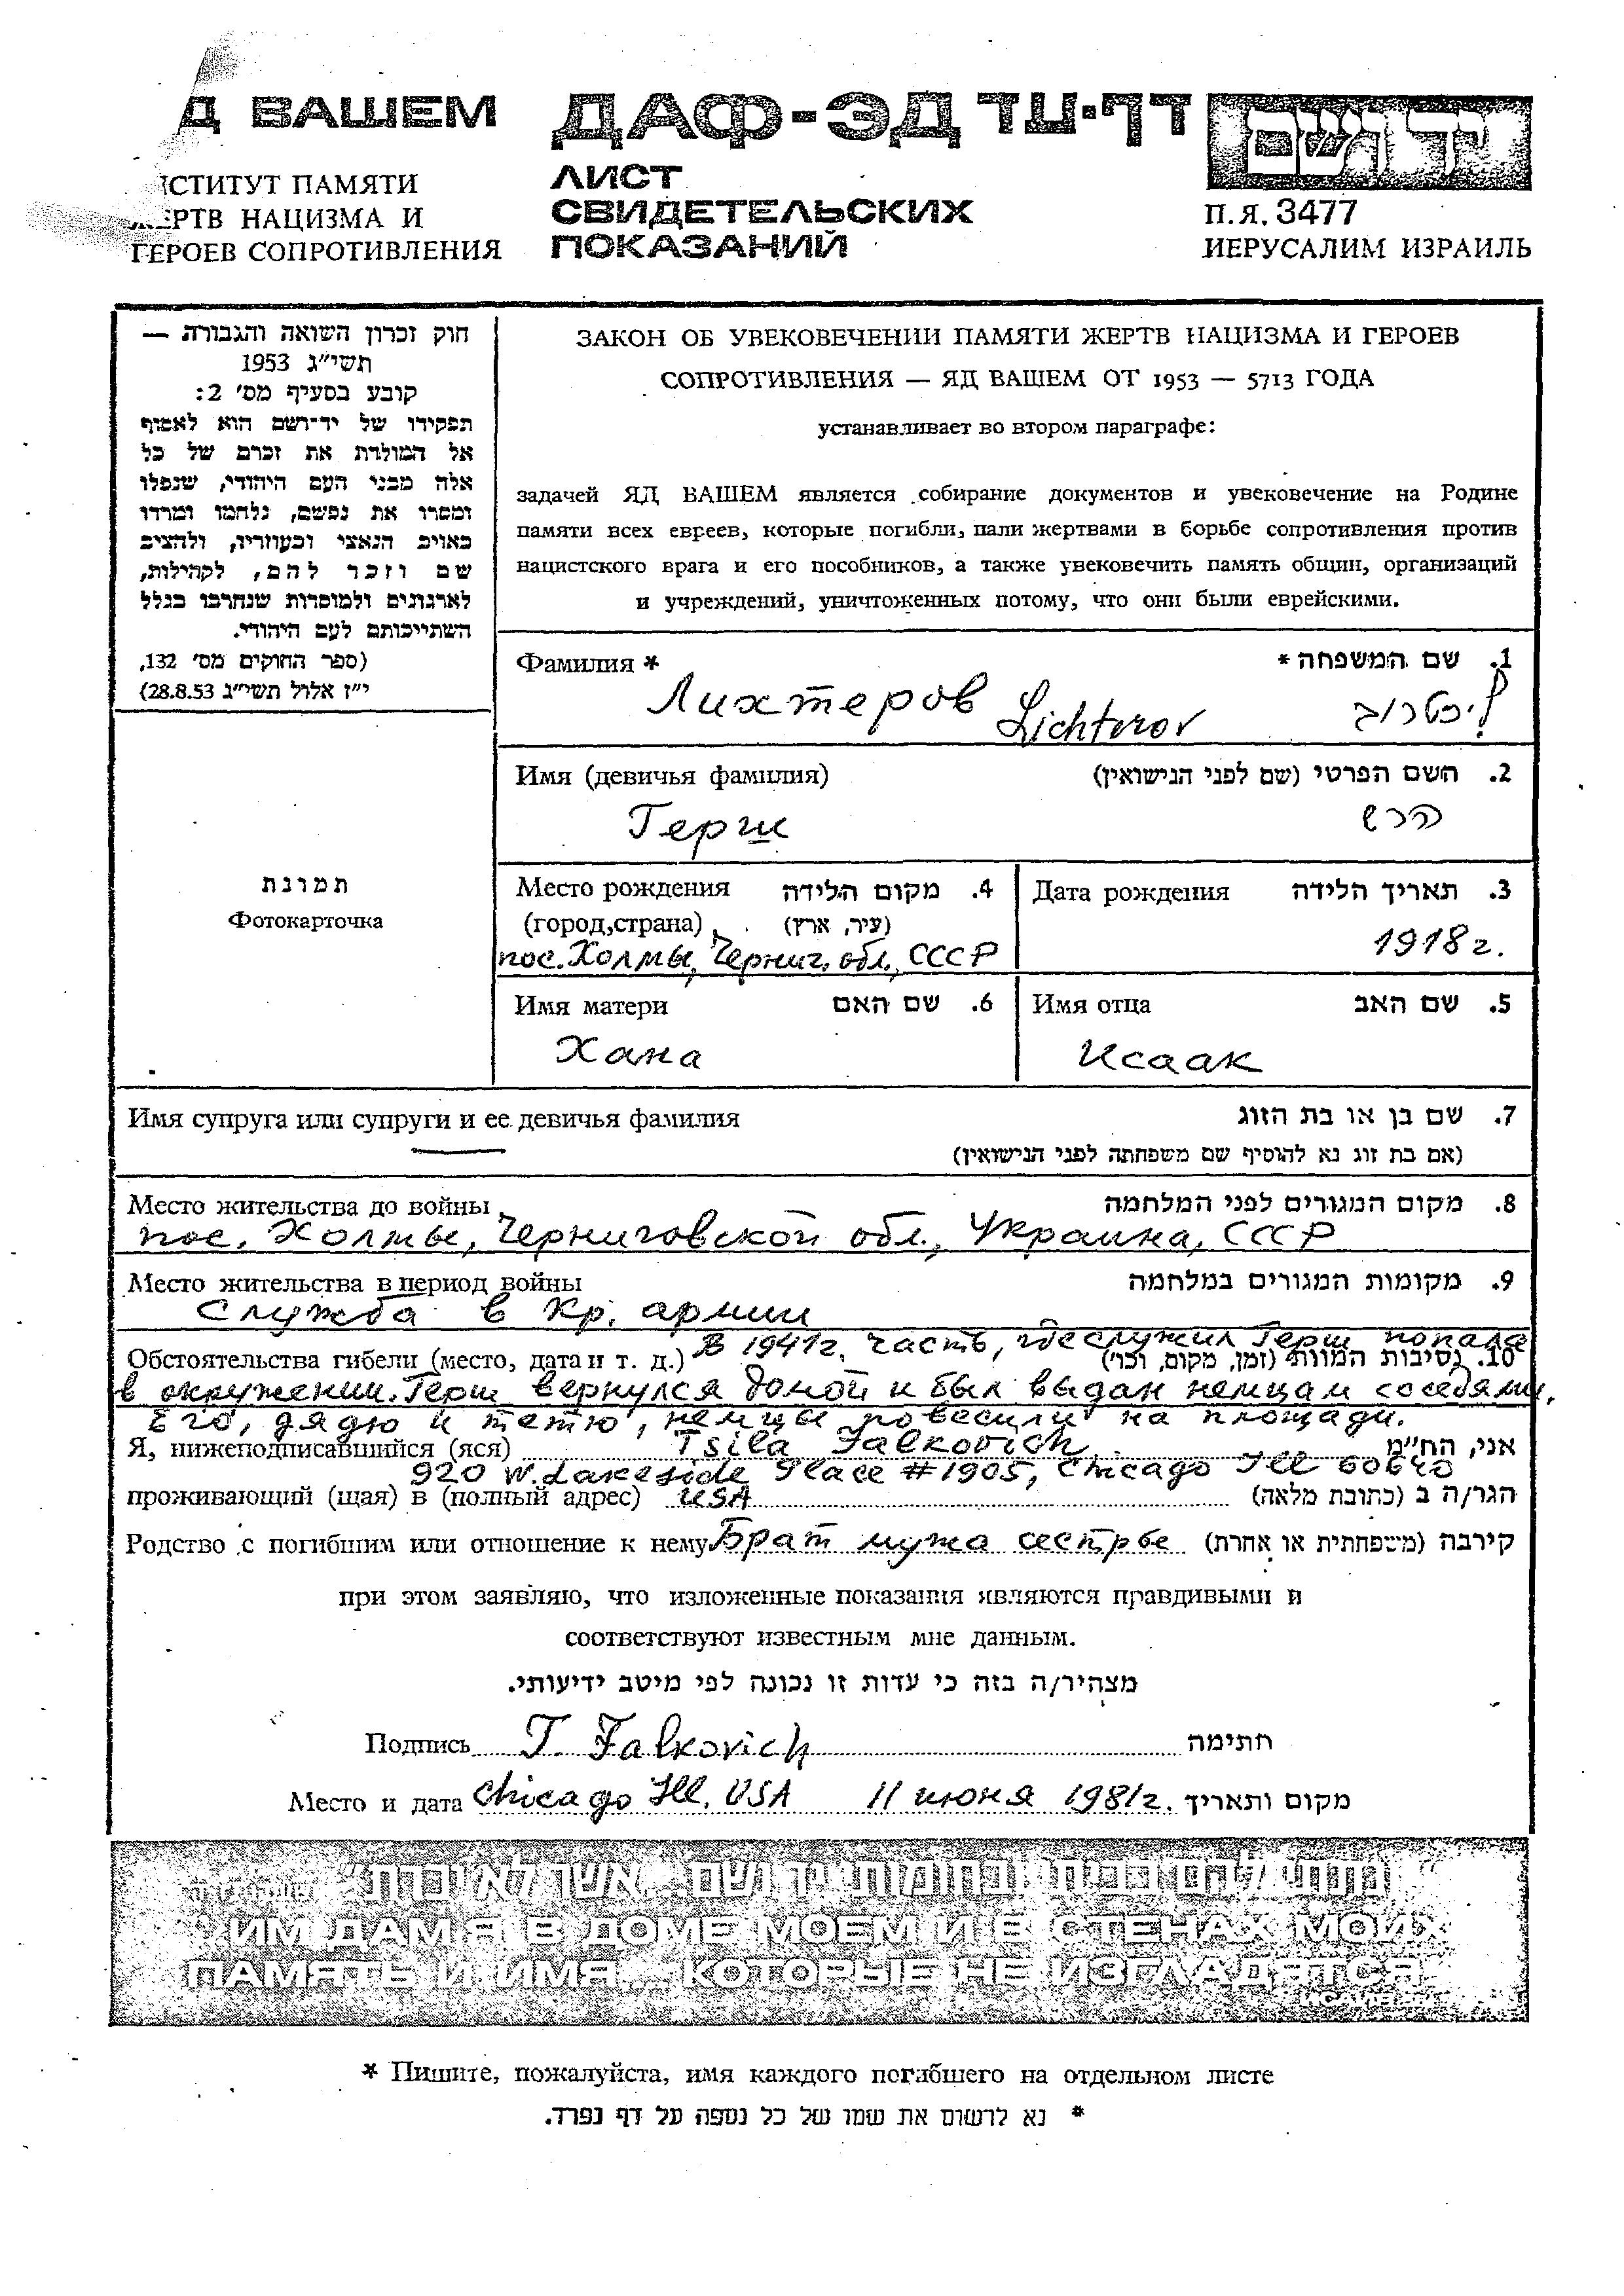 Д ВАШЕМ
ДАФ-ЭД דף-עד
יד ושם
ИНСТИТУТ ПАМЯТИ
ЖЕРТВ НАЦИЗМА И
ГЕРОЕВ СОПРОТИВЛЕНИЯ
ЛИСТ
СВИДЕТЕЛЬСКИХ
ПОКАЗАНИЙ
П.Я. 3477
ИЕРУСАЛИМ ИЗРАИЛЬ
חוק זכרון השואה והגבורה —
תשי״ג 1953
קובע בסעיף מס׳ 2:
תפקידו של יד־ושם הוא לאסוף
אל המולדת את זכרם של כל
אלה מבני העם היהודי, שנפלו
ומסרו את נפשם, נלחמו ומרדו
באויב הנאצי ובעוזריו, ולהציב
שם וזכר להם, לקהילות,
לארגונים ולמוסדות שנחרבו בגלל
השתייכותם לעם היהודי.
(ספר החוקים מס׳ 132,
י״ז אלול תשי״ג 28.8.53)
ЗАКОН ОБ УВЕКОВЕЧЕНИИ ПАМЯТИ ЖЕРТВ НАЦИЗМА И ГЕРОЕВ
СОПРОТИВЛЕНИЯ — ЯД ВАШЕМ ОТ 1953 — 5713 ГОДА
устанавливает во втором параграфе:
задачей ЯД ВАШЕМ является собирание документов и увековечение на Родине
памяти всех евреев, которые погибли, пали жертвами в борьбе сопротивления против
нацистского врага и его пособников, а также увековечить память общин, организаций
и учреждений, уничтоженных потому, что они были еврейскими.
Фамилия * 1. שם המשפחה *
Лихтеров Lichterov ליכטרוב
Имя (девичья фамилия) 2. השם הפרטי (שם לפני הנישואין)
Герш הרש
תמונת
Фотокарточка
Место рождения 4. מקום הלידה
(город,страна) (עיר, ארץ)
пос. Холмы, Черниг. обл., СССР
Дата рождения 3. תאריך הלידה
1918 г.
Имя матери 6. שם האם
Хана
Имя отца 5. שם האב
Исаак
Имя супруга или супруги и ее девичья фамилия 7. שם בן או בת הזוג
(אם בת זוג נא להוסיף שם משפחתה לפני הנישואין)
Место жительства до войны 8. מקום המגורים לפני המלחמה
пос. Холмы, Черниговской обл., Украина, СССР
Место жительства в период войны 9. מקומות המגורים במלחמה
Служба в Кр. армии
В 1941г. часть, где служил Герш попала
Обстоятельства гибели (место, дата и т. д.) 10. נסיבות המוות (זמן, מקום, וכו׳)
в окружении. Герш вернулся домой и был выдан немцам соседями.
Его, дядю и тетю, немцы повесили на площади.
Я, нижеподписавшийся (яся) Tsila Falkovich אני, הח״מ
920 W. Lakeside Place #1905, Chicago Ill 60640
проживающий (щая) в (полный адрес) USA הגר/ה ב (כתובת מלאה)
Родство с погибшим или отношение к нему Брат мужа сестры קירבה (משפחתית או אחרת)
при этом заявляю, что изложенные показания являются правдивыми и
соответствуют известным мне данным.
מצהיר/ה בזה כי עדות זו נכונה לפי מיטב ידיעותי.
Подпись T. Falkovich חתימה
Место и дата Chicago Ill. USA 11 июня 1981г. מקום ותאריך
״ונתתי להם בביתי ובחומותי יד ושם... אשר לא יכרת״
ИМ ДАМ Я В ДОМЕ МОЕМ И В СТЕНАХ МОИХ
ПАМЯТЬ И ИМЯ... КОТОРЫЕ НЕ ИЗГЛАДЯТСЯ
* Пишите, пожалуйста, имя каждого погибшего на отдельном листе
* נא לרשום את שמו של כל נספה על דף נפרד.